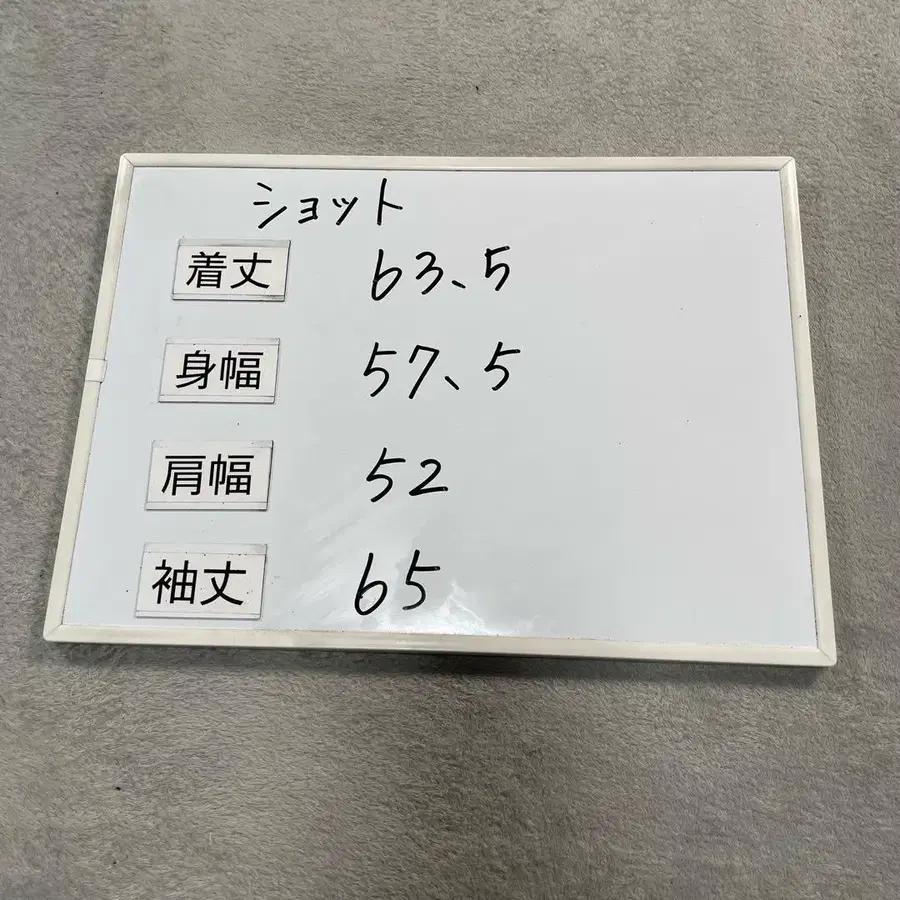 ショット
着丈 63、5
身幅 57、5
肩幅 52
袖丈 65